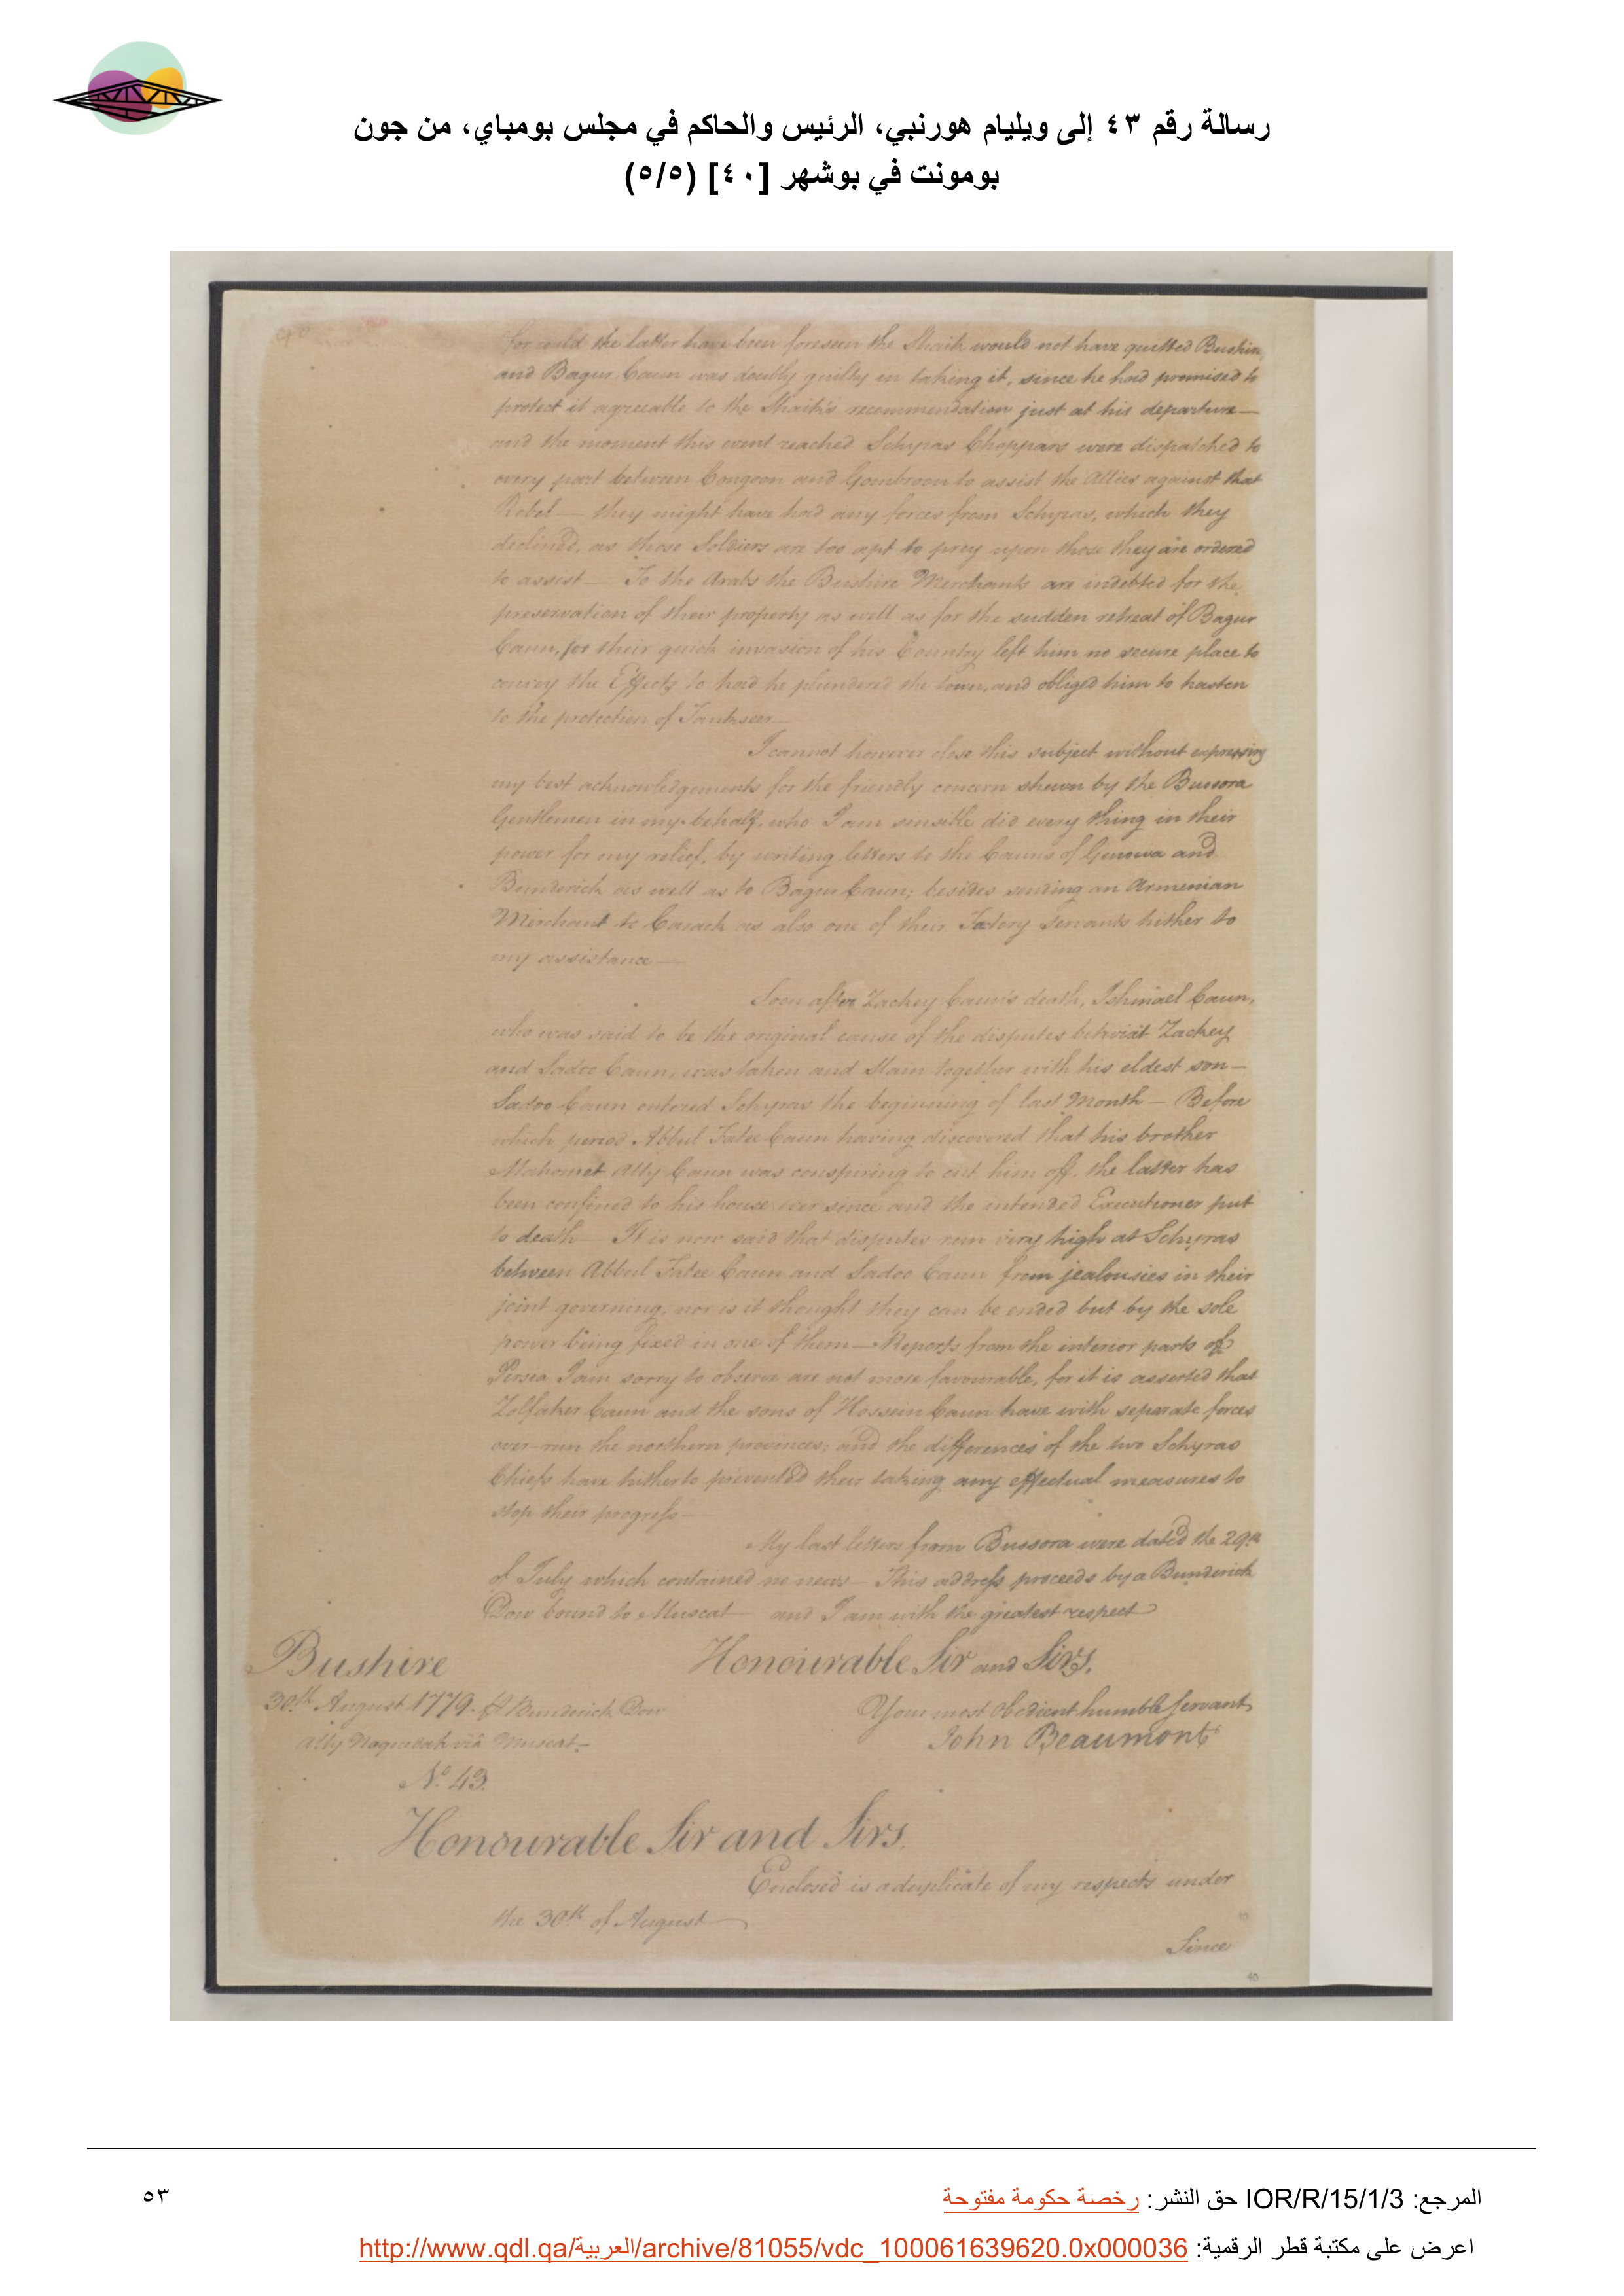 رسالة رقم ٤٣ إلى ويليام هورنبي، الرئيس والحاكم في مجلس بومباي، من جون
بومونت في بوشهر [٤٠] (٥/٥)
for could the latter have been foreseen the Shaik would not have quitted Bushire,
and Bagur Caun was doubly guilty in taking it, since he had promised to
protect it agreeable to the Shaik's recommendation just at his departure—
and the moment this event reached Schyras Choppars were dispatched to
every part between Congoon and Gombroon to assist the Allies against that
Rebel— they might have had any forces from Schyras, which they
declined, as those Soldiers are too apt to prey upon those they are ordered
to assist— To the Arabs the Bushire Merchants are indebted for the
preservation of their property as well as for the sudden retreat of Bagur
Caun, for their quick invasion of his Country left him no secure place to
convey the Effects to had he plundered the town, and obliged him to hasten
to the protection of Tankseer—
I cannot however close this subject without expressing
my best acknowledgements for the friendly concern shewn by the Bussora
Gentlemen in my behalf, who I am sensible did every thing in their
power for my relief, by writing letters to the Cauns of Genowa and
Bunderick as well as to Bagur Caun; besides sending an Armenian
Merchant to Carack as also one of their Factory Servants hither to
my assistance—
Soon after Zackey Caun's death, Ishmael Caun,
who was said to be the original cause of the disputes betwixt Zackey
and Sadoo Caun, was taken and Slain together with his eldest son—
Sadoo Caun entered Schyras the beginning of last Month— Before
which period Abbul Fatee Caun having discovered that his brother
Mahomet Ally Caun was conspiring to cut him off, the latter has
been confined to his house ever since and the intended Executioner put
to death— It is now said that disputes run very high at Schyras
between Abbul Fatee Caun and Sadoo Caun from jealousies in their
joint governing, nor is it thought they can be ended but by the sole
power being fixed in one of them— Reports from the interior parts of
Persia I am sorry to observe are not more favourable, for it is asserted that
Zolfaker Caun and the sons of Hossein Caun have with separate forces
over-run the northern provinces; and the differences of the two Schyras
Chiefs have hitherto prevented their taking any effectual measures to
stop their progress—
My last letters from Bussora were dated the 29th
of July which contained no news— This address proceeds by a Bunderick
Dow bound to Muscat— and I am with the greatest respect
Honourable Sir and Sirs,
Bushire
30th August 1779. Bunderick Dow
Ally Noquedah via Muscat—
Your most obedient humble Servant
John Beaumont
No. 43.
Honourable Sir and Sirs.
Enclosed is a duplicate of my respects under
the 30th of August—
Since
40
المرجع: IOR/R/15/1/3 حق النشر: رخصة حكومة مفتوحة
٥٣
اعرض على مكتبة قطر الرقمية: http://www.qdl.qa/العربية/archive/81055/vdc_100061639620.0x000036